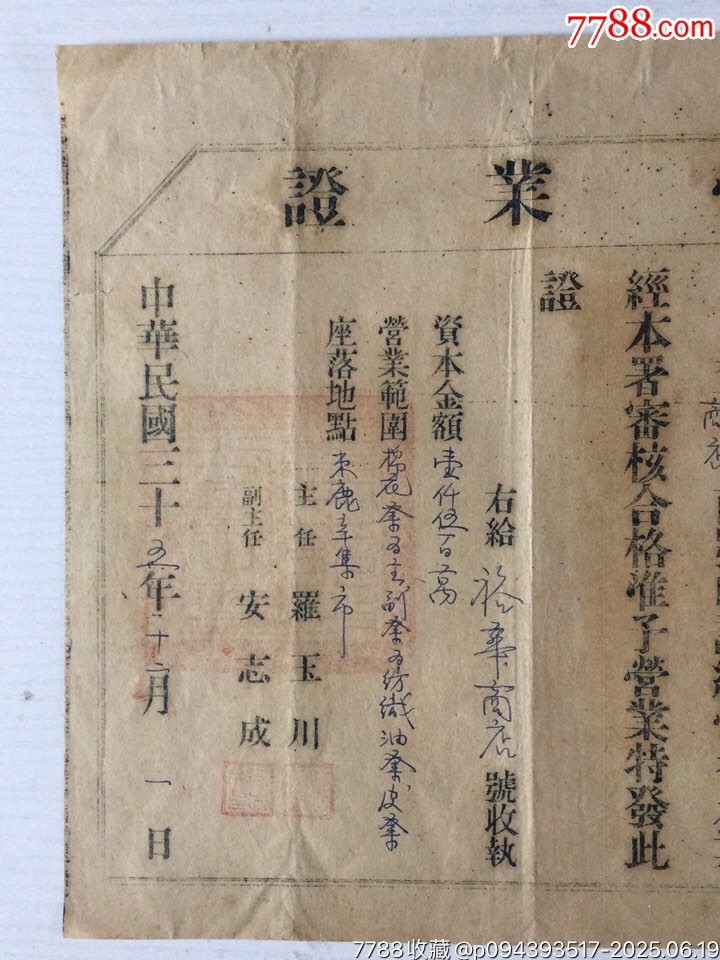 7788.com
證 業
商店
經本署審核合格准予營業特發此
證
右給 裕華商店 號收執
資本金額 壹仟伍百萬
營業範圍 棉花業為主副業為紡織油業皮業
座落地點 束鹿辛集市
主任 羅玉川
副主任 安志成
中華民國三十五年十二月一日
7788收藏 @p094393517-2025.06.19